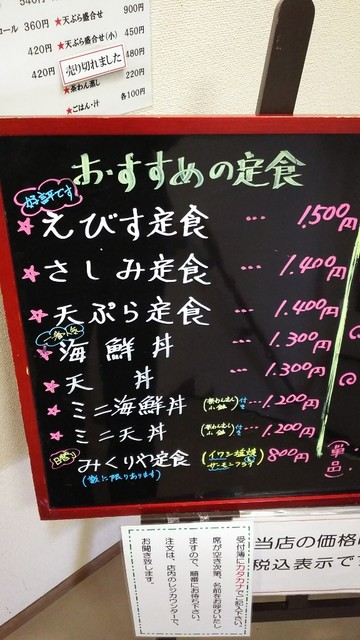 540円
コール 360円
★天ぷら盛合せ 900円
420円 ★天ぷら盛合せ(小) 450円
売り切れました 480円
420円
★茶わん蒸し 220円
★ごはん・汁 各100円
おすすめの定食
好評です
★えびす定食 … 1.500円
★さしみ定食 … 1.400円
★天ぷら定食 … 1.400円
★海鮮丼 … 1.300円
★天丼 … 1.300円
★ミニ海鮮丼 (茶わんむし 小鉢)付き… 1.200円
★ミニ天丼 (茶わんむし 小鉢)付き… 1.200円
日替り
みくりや定食 (イワシ塩焼 サーモンフライ) 800円
(数に限りあります)
(単品)
受付簿にカタカナでご記入下さい。
席が空き次第、名前をお呼びいたし
ますので、順番にお待ち下さい。
注文は、店内のレジカウンターで、
お聞き致します。
当店の価格は
税込表示で